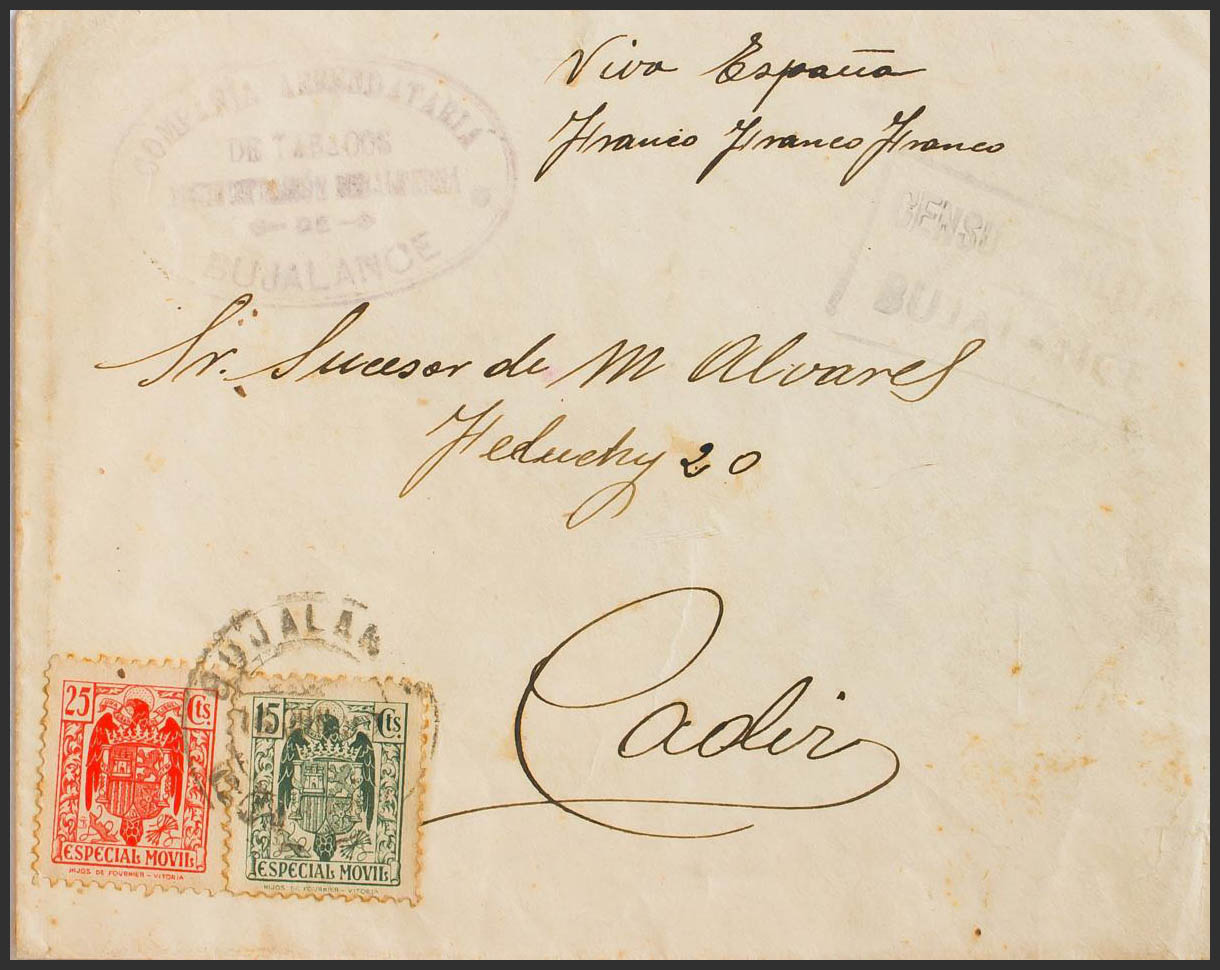 Viva España
Franco Franco Franco
COMPAÑIA ARRENDATARIA
DE TABACOS
DE
BUJALANCE
CENSU
BUJALANCE
Sr. Sucesor de M Alvares
Feduchy 20
Cadiz
BUJALAN
25 Cts.
ESPECIAL MOVIL
HIJOS DE FOURNIER - VITORIA
15 Cts
ESPECIAL MOVIL
HIJOS DE FOURNIER - VITORIA